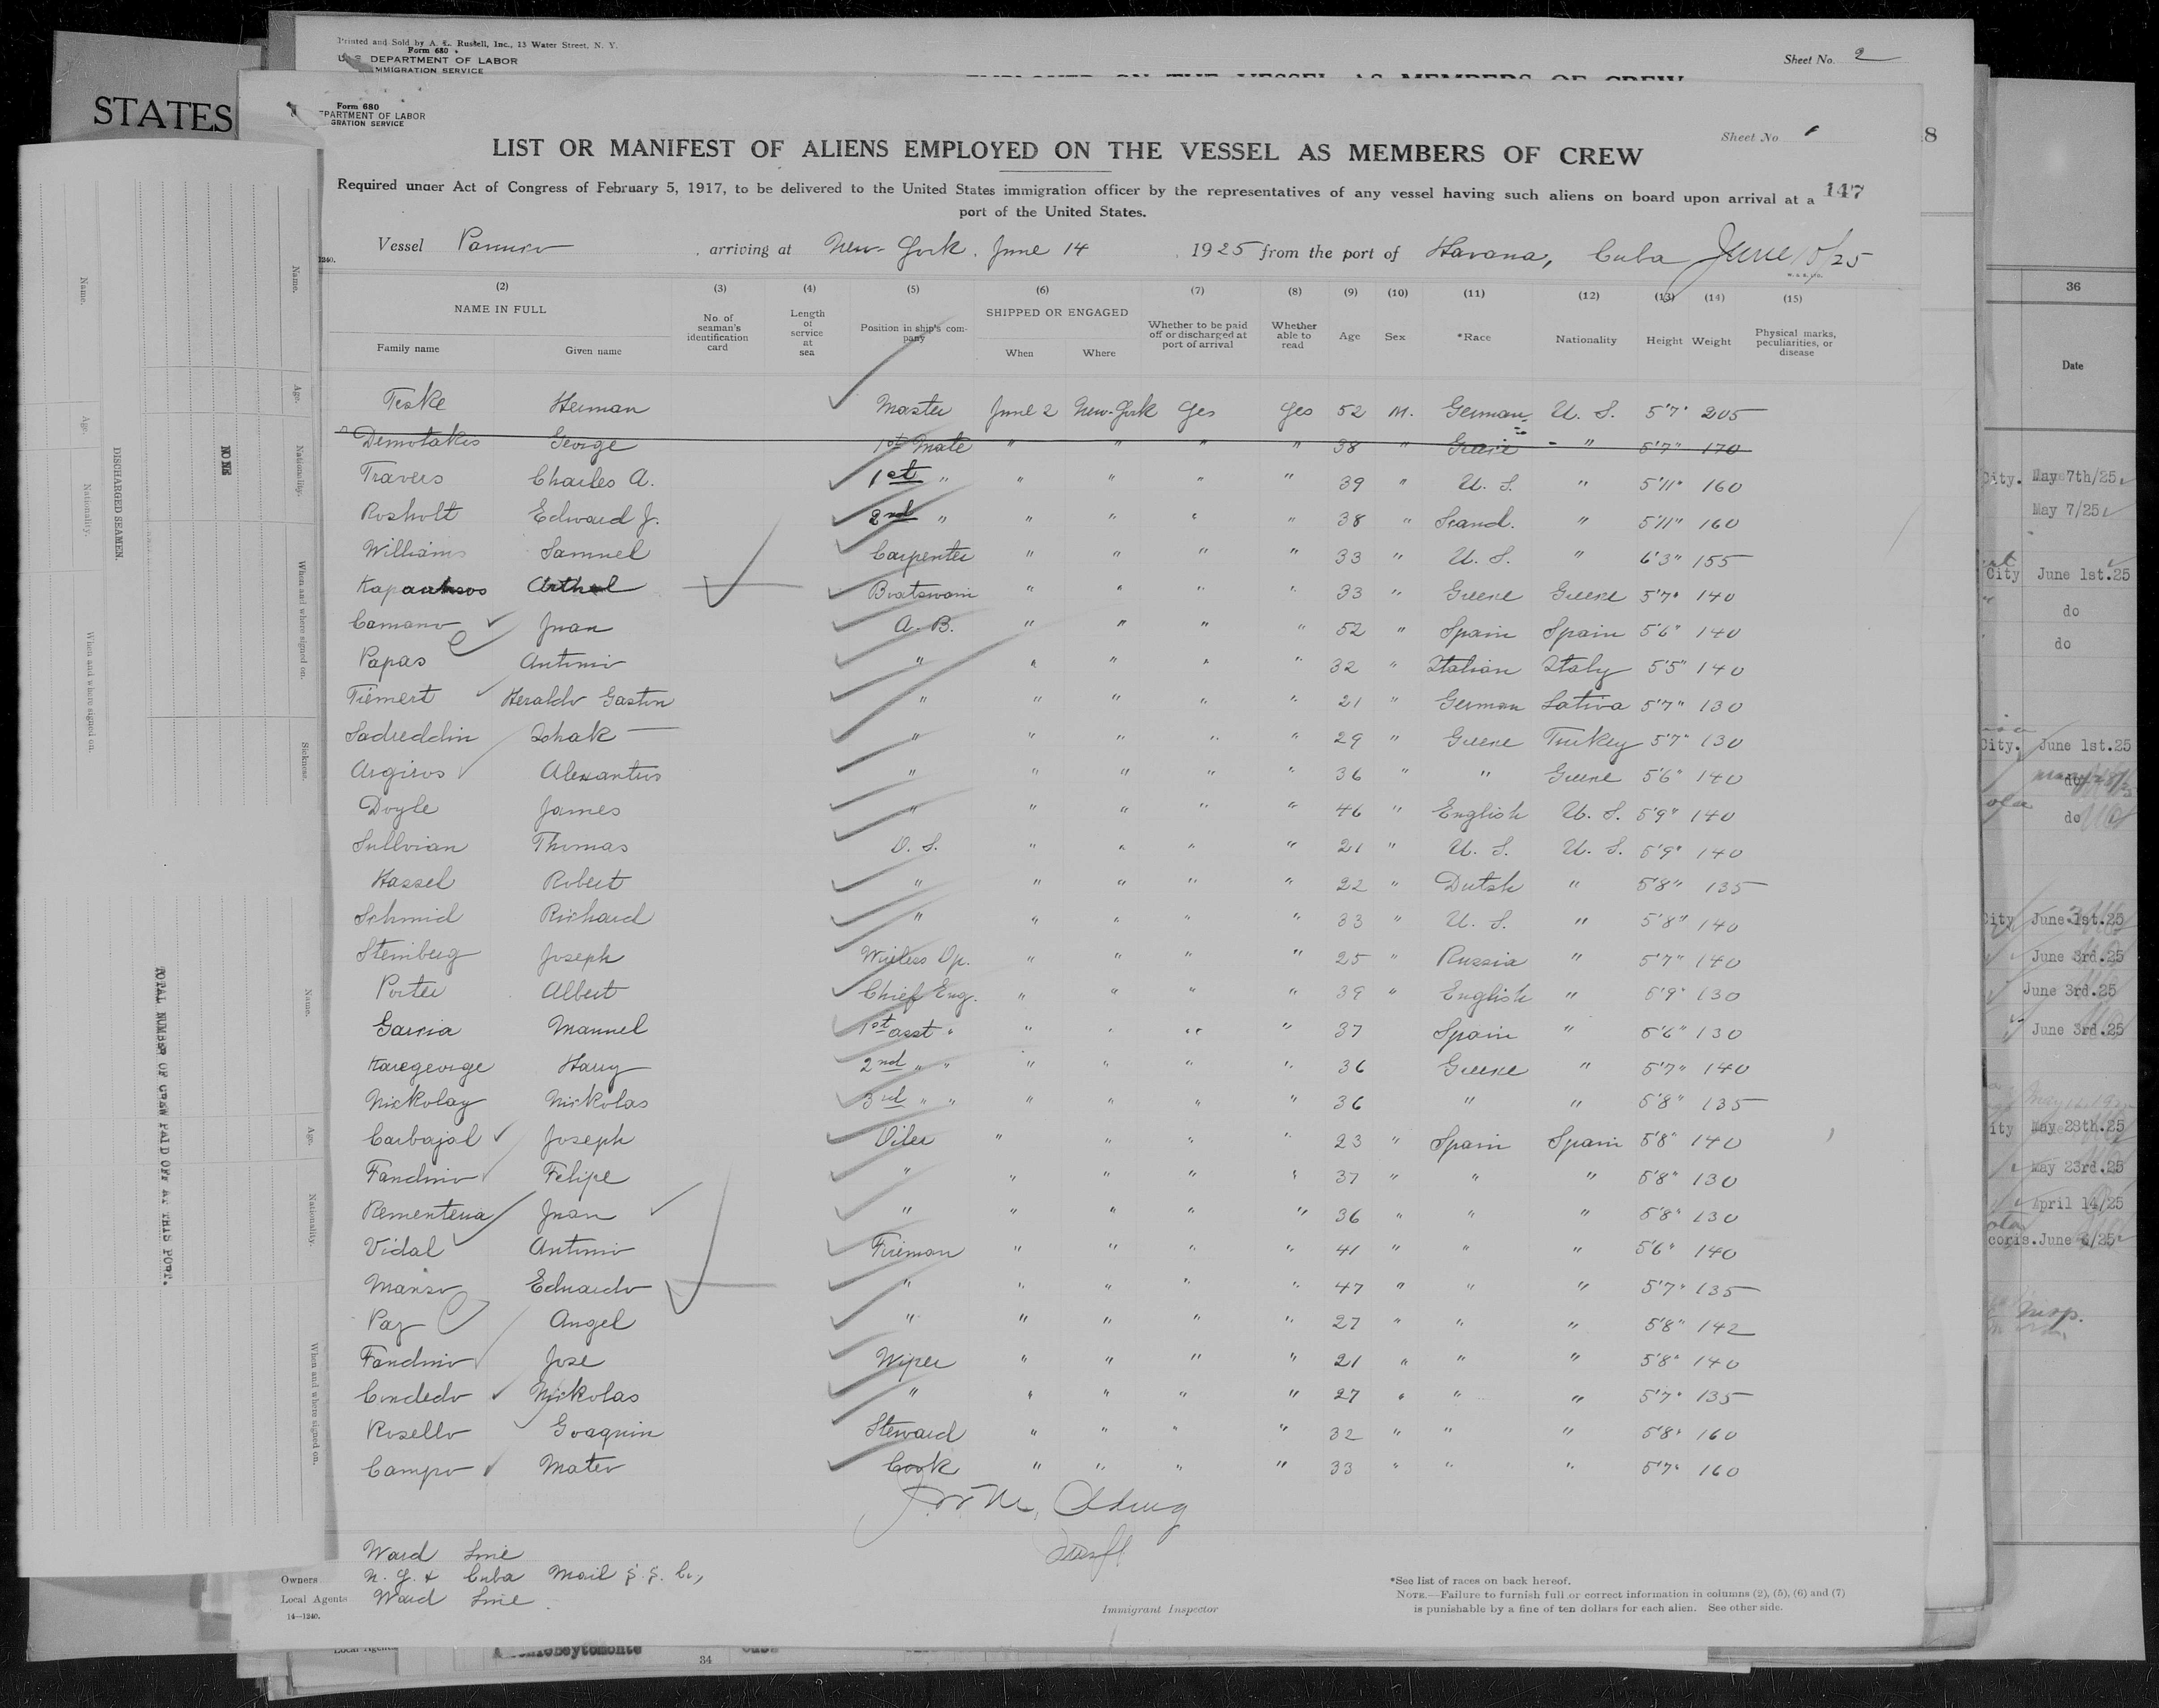 Printed and Sold by A. L. Russell, Inc., 13 Water Street, N. Y.
Form 680
U. S. DEPARTMENT OF LABOR
IMMIGRATION SERVICE
Sheet No. 2
STATES
Form 680
DEPARTMENT OF LABOR
GRATION SERVICE
Sheet No 1
8
LIST OR MANIFEST OF ALIENS EMPLOYED ON THE VESSEL AS MEMBERS OF CREW
Required under Act of Congress of February 5, 1917, to be delivered to the United States immigration officer by the representatives of any vessel having such aliens on board upon arrival at a
port of the United States.
147
Vessel Panuco arriving at New-York. June 14 1925 from the port of Havana, Cuba June 10/25
(2) (3) (4) (5) (6) (7) (8) (9) (10) (11) (12) (13) (14) (15)
NAME IN FULL
Family name Given name
No. of seaman's identification card
Length of service at sea
Position in ship's company
SHIPPED OR ENGAGED
When Where
Whether to be paid off or discharged at port of arrival
Whether able to read
Age Sex *Race Nationality Height Weight
Physical marks, peculiarities, or disease
Teske Herman Master June 2 New-York Yes Yes 52 M. German U. S. 5'7" 205
Demotakis George 1st Mate " " " " 38 " Greece " 5'7" 170
Travers Charles A. 1st " " " " " 39 " U. S. " 5'11" 160
Rosholt Edward J. 2nd " " " " " 38 " Scand. " 5'11" 160
Williams Samuel Carpenter " " " " 33 " U. S. " 6'3" 155
Boatswain " " " " 33 " Greece Greece 5'7" 140
Camano Juan A. B. " " " " 52 " Spain Spain 5'6" 140
Papas Antonio " " " " " 32 " Italian Italy 5'5" 140
Tiemert Heraldo Gaston " " " " " 21 " German Lativa 5'7" 130
Sadreddin Ishak " " " " " 29 " Greece Turkey 5'7" 130
Argiros Alexantros " " " " " 36 " " Greece 5'6" 140
Doyle James " " " " " 46 " English U. S. 5'9" 140
Sullvian Thomas O. S. " " " " 21 " U. S. U. S. 5'9" 140
Hassel Robert " " " " " 22 " Dutsh " 5'8" 135
Schmid Richard " " " " " 33 " U. S. " 5'8" 140
Steinberg Joseph Wireless Op. " " " " 25 " Russia " 5'7" 140
Porter Albert Chief Eng. " " " " 39 " English " 5'9" 130
Garcia Manuel 1st asst " " " " " 37 Spain " 5'6" 130
Karegeorge Harry 2nd " " " " " " 36 Greece " 5'7" 140
Nickolay Nickolas 3rd " " " " " " 36 " " 5'8" 135
Carbajal Joseph Oiler " " " " 23 " Spain Spain 5'8" 140
Fandino Felipe " " " " " 37 " " " 5'8" 130
Rementeria Juan " " " " " 36 " " " 5'8" 130
Vidal Antonio Fireman " " " " 41 " " " 5'6" 140
Manso Eduardo " " " " " 47 " " " 5'7" 135
Paz Angel " " " " " 27 " " " 5'8" 142
Fandino Jose Wiper " " " " 21 " " " 5'8" 140
Condedo Nickolas " " " " " 27 " " " 5'7" 135
Rosello Goaquin Steward " " " " 32 " " " 5'8" 160
Campo Mateo Cook " " " " 33 " " " 5'7" 160
Ward Line
Owners N. Y. & Cuba Mail S. S. Co,
Local Agents Ward Line
14—1240.
Immigrant Inspector
*See list of races on back hereof.
NOTE.—Failure to furnish full or correct information in columns (2), (5), (6) and (7)
is punishable by a fine of ten dollars for each alien. See other side.
34
Name. Age. Nationality. When and where signed on. Sickness.
DISCHARGED SEAMEN.
NONE
Name. Age. Nationality. When and where signed on.
TOTAL NUMBER OF CREW PAID OFF AT THIS PORT.
36
Date
City. May 7th/25
May 7/25
City June 1st.25
do
do
City. June 1st.25
do
do
City June 1st.25
June 3rd.25
June 3rd.25
June 3rd.25
ity May 28th.25
May 23rd.25
April 14/25
coris. June 6/25
Insp.